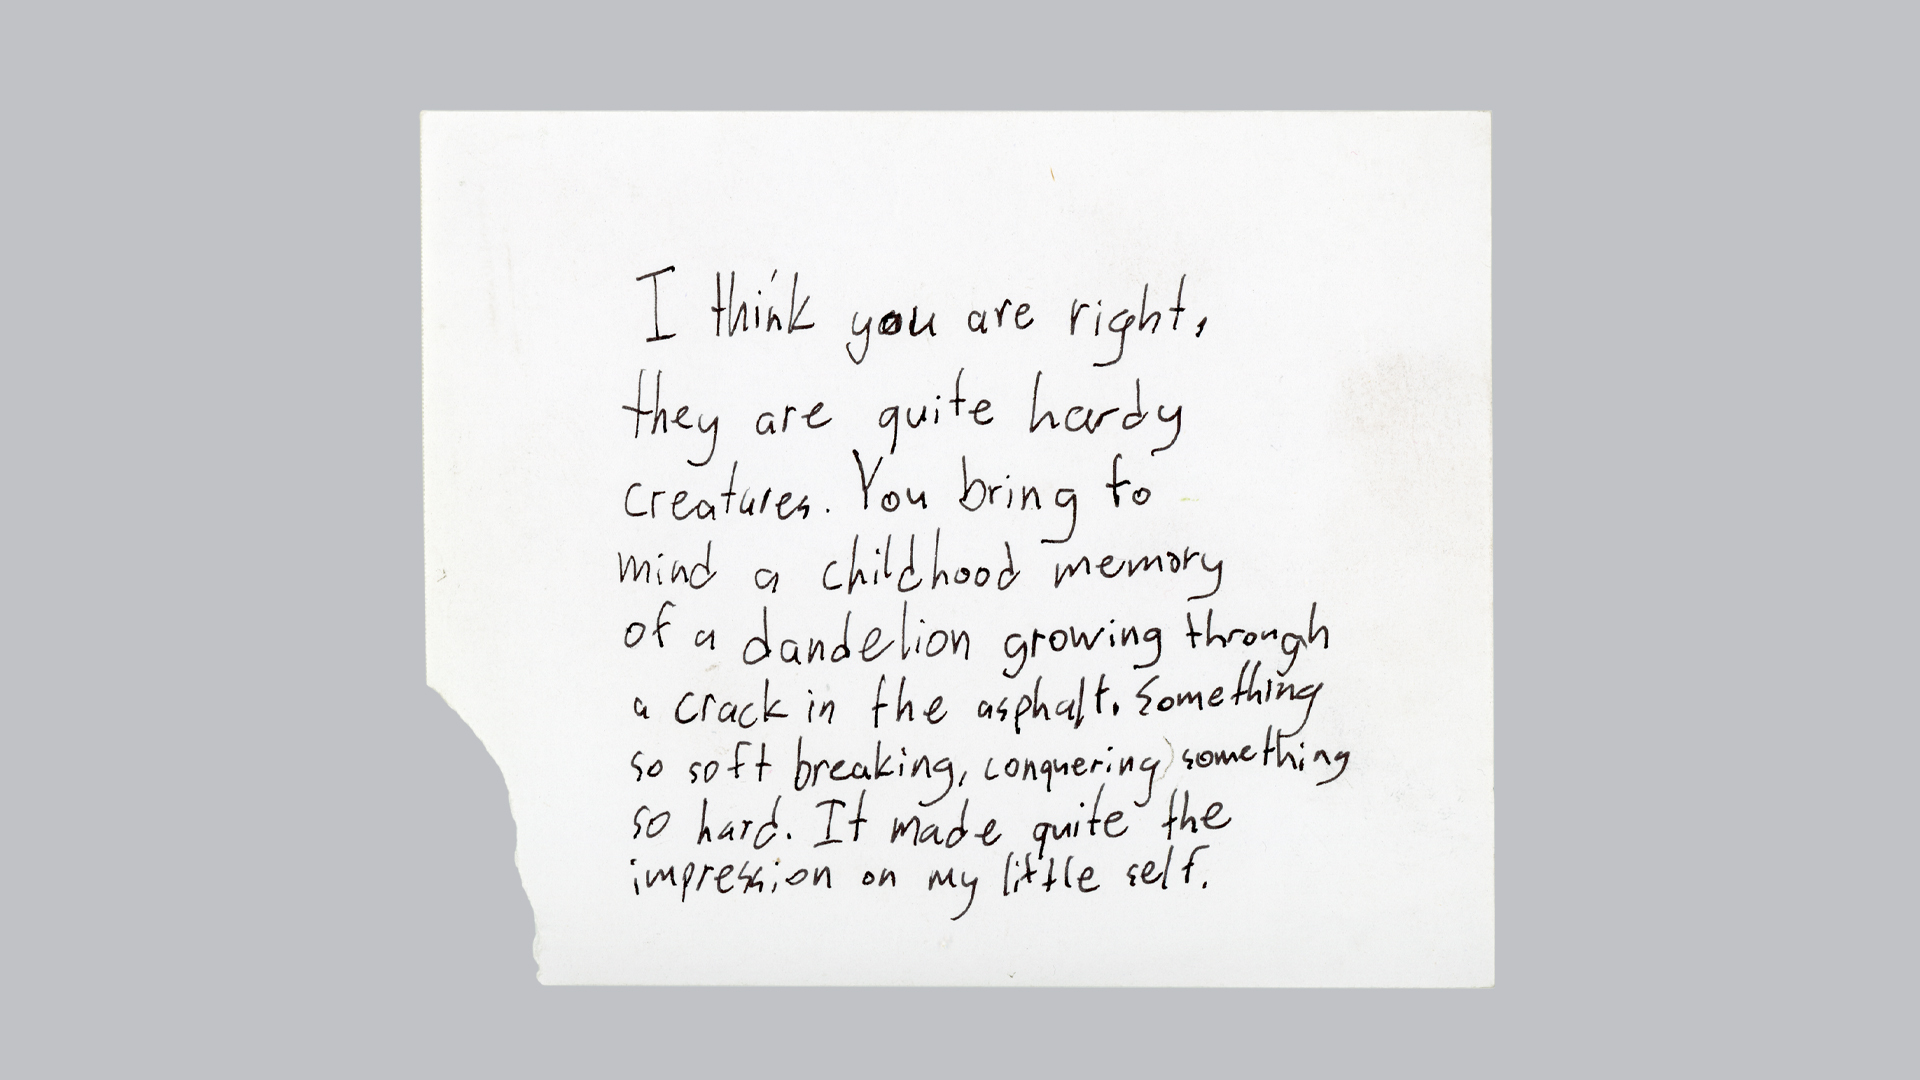 I think you are right,
they are quite hardy
creatures. You bring to
mind a childhood memory
of a dandelion growing through
a crack in the asphalt. Something
so soft breaking, conquering something
so hard. It made quite the
impression on my little self.